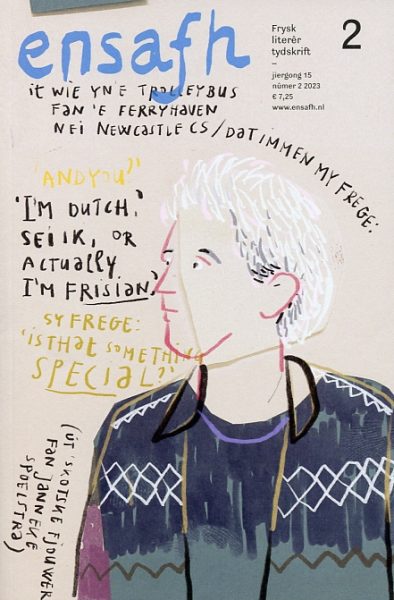 ensafh
Frysk
literêr
tydskrift
–
jiergong 15
nûmer 2 2023
€ 7,25
www.ensafh.nl
2
it wie yn'e trolleybus
fan 'e ferryhaven
nei Newcastle CS / dat immen my frege:
'And you?'
'I'm Dutch,'
sei ik, or
actually
I'm Frisian.'
Sy frege:
'is that something
special?'
(út 'Skotske fjouwer
fan Janneke
Spoelstra)